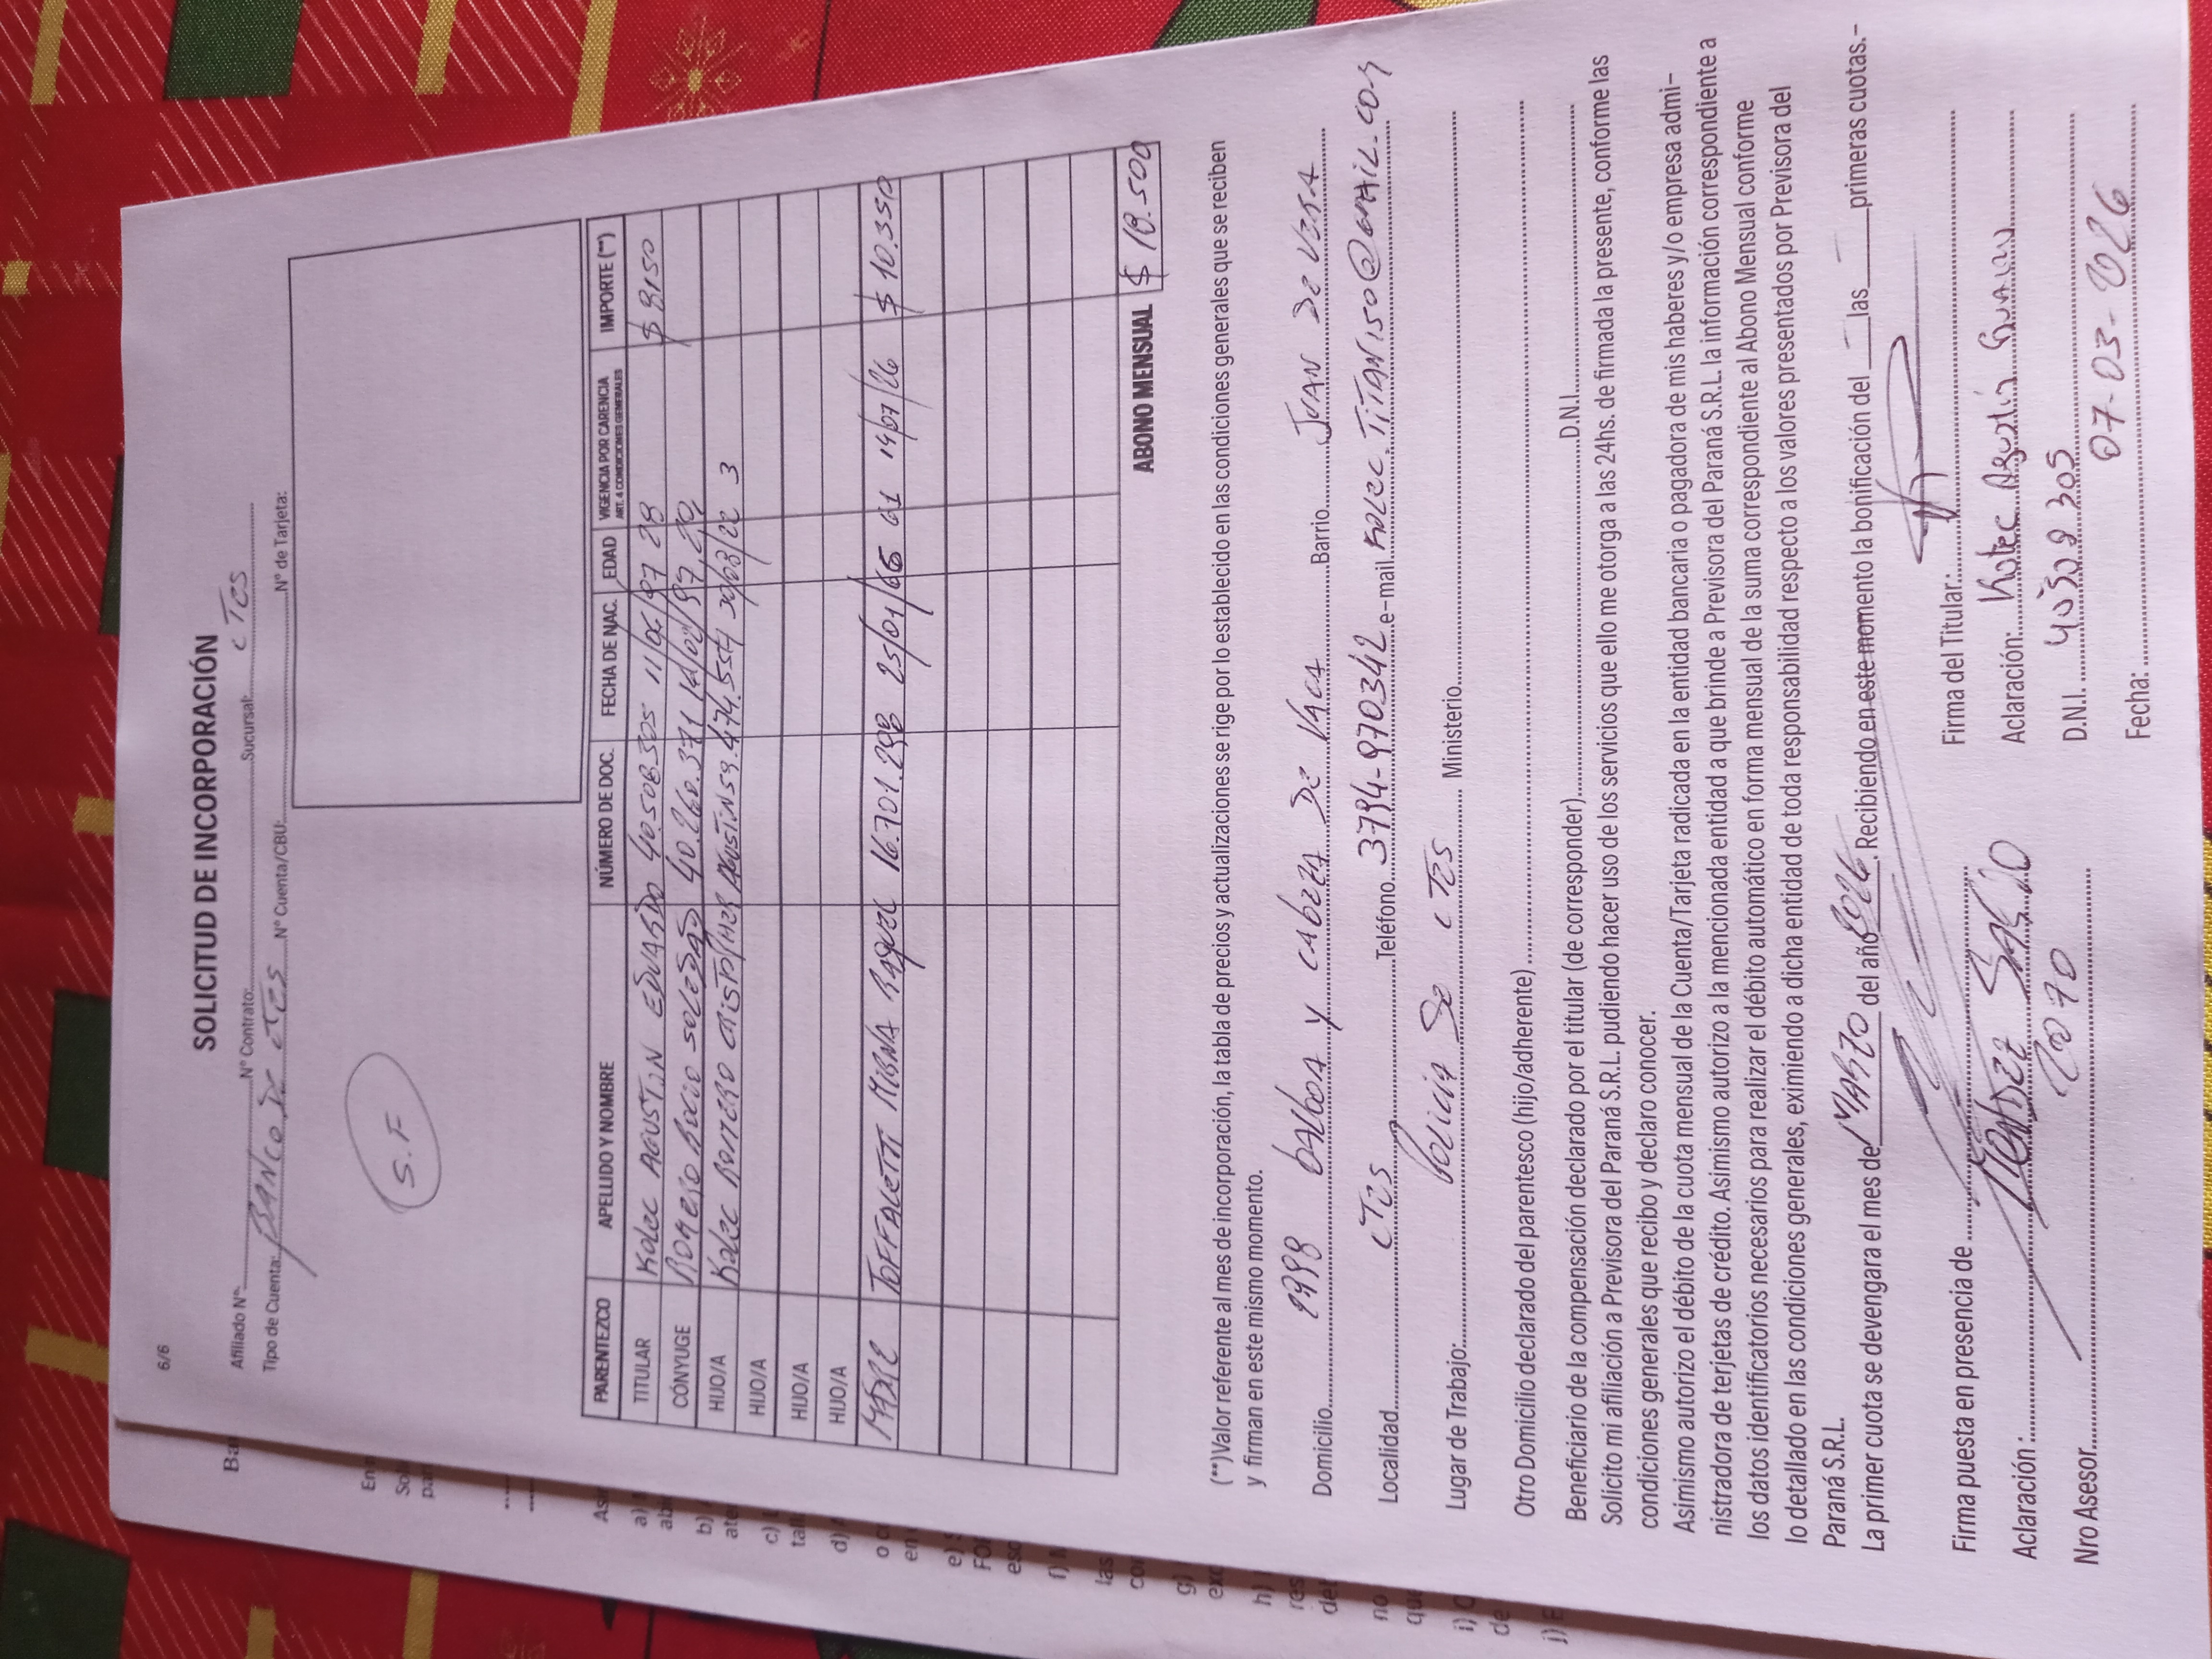 6/6
SOLICITUD DE INCORPORACIÓN
Afiliado Nº: Nº Contrato: Sucursal: CTES
Tipo de Cuenta: BANCO DE CTES Nº Cuenta/CBU: Nº de Tarjeta:
S.F
PARENTEZCO APELLIDO Y NOMBRE NÚMERO DE DOC. FECHA DE NAC. EDAD VIGENCIA POR CARENCIA ART. 4 CONDICIONES GENERALES IMPORTE (**)
TITULAR KOLEC AGUSTIN EDUARDO 40.508.305 11/06/97 28 $ 9150
CÓNYUGE ROMERO ROCIO SOLEDAD 40.260.371 14/02/97
HIJO/A KOLEC ROMERO AGUSTIN 59.474.554 30/03/22 3
HIJO/A
HIJO/A
HIJO/A
MADRE TOFFALETTI MIRNA RAQUEL 16.701.298 25/01/65 61 14/07/26 $ 10.350
ABONO MENSUAL $ 19.500
(**)Valor referente al mes de incorporación, la tabla de precios y actualizaciones se rige por lo establecido en las condiciones generales que se reciben
y firman en este mismo momento.
Domicilio 2998 BALBOA Y CABEZA DE VACA Barrio JUAN DE VERA
Localidad CTES Teléfono 3794-970342 e-mail KOLEC.TITAN150@GMAIL.COM
Lugar de Trabajo: POLICIA DE CTES Ministerio
Otro Domicilio declarado del parentesco (hijo/adherente)
Beneficiario de la compensación declarado por el titular (de corresponder) D.N.I.
Solicito mi afiliación a Previsora del Paraná S.R.L. pudiendo hacer uso de los servicios que ello me otorga a las 24hs. de firmada la presente, conforme las
condiciones generales que recibo y declaro conocer.
Asimismo autorizo el débito de la cuota mensual de la Cuenta/Tarjeta radicada en la entidad bancaria o pagadora de mis haberes y/o empresa admi-
nistradora de terjetas de crédito. Asimismo autorizo a la mencionada entidad a que brinde a Previsora del Paraná S.R.L. la información correspondiente a
los datos identificatorios necesarios para realizar el débito automático en forma mensual de la suma correspondiente al Abono Mensual conforme
lo detallado en las condiciones generales, eximiendo a dicha entidad de toda responsabilidad respecto a los valores presentados por Previsora del
Paraná S.R.L.
La primer cuota se devengara el mes de MARZO del año 2026. Recibiendo en este momento la bonificación del las primeras cuotas.-
Firma puesta en presencia de Firma del Titular:
Aclaración: Aclaración: Kolec Agustín
Nro Asesor D.N.I. 40508305
Fecha: 07-03-2026